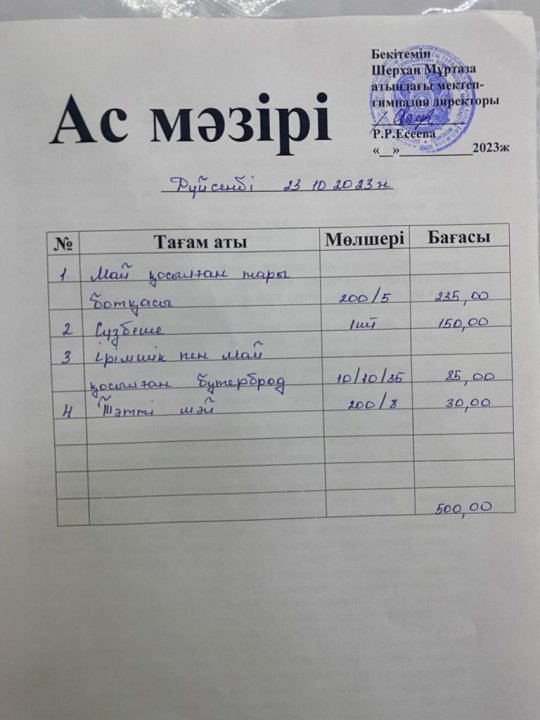 Бекітемін
Шерхан Мұртаза
атындағы мектеп-
гимназия директоры
Р.Р.Есеева
«__»___________2023ж
Ас мәзірі
Дүйсенбі 23 10 2023ж
№ Тағам аты Мөлшері Бағасы
1 Май қосылған тары
ботқасы 200/5 235,00
2 Сүзбеше 1шт 150,00
3 Ірімшік пен май
қосылған бутерброд 10/10/35 85,00
4 Тәтті шәй 200/8 30,00
500,00